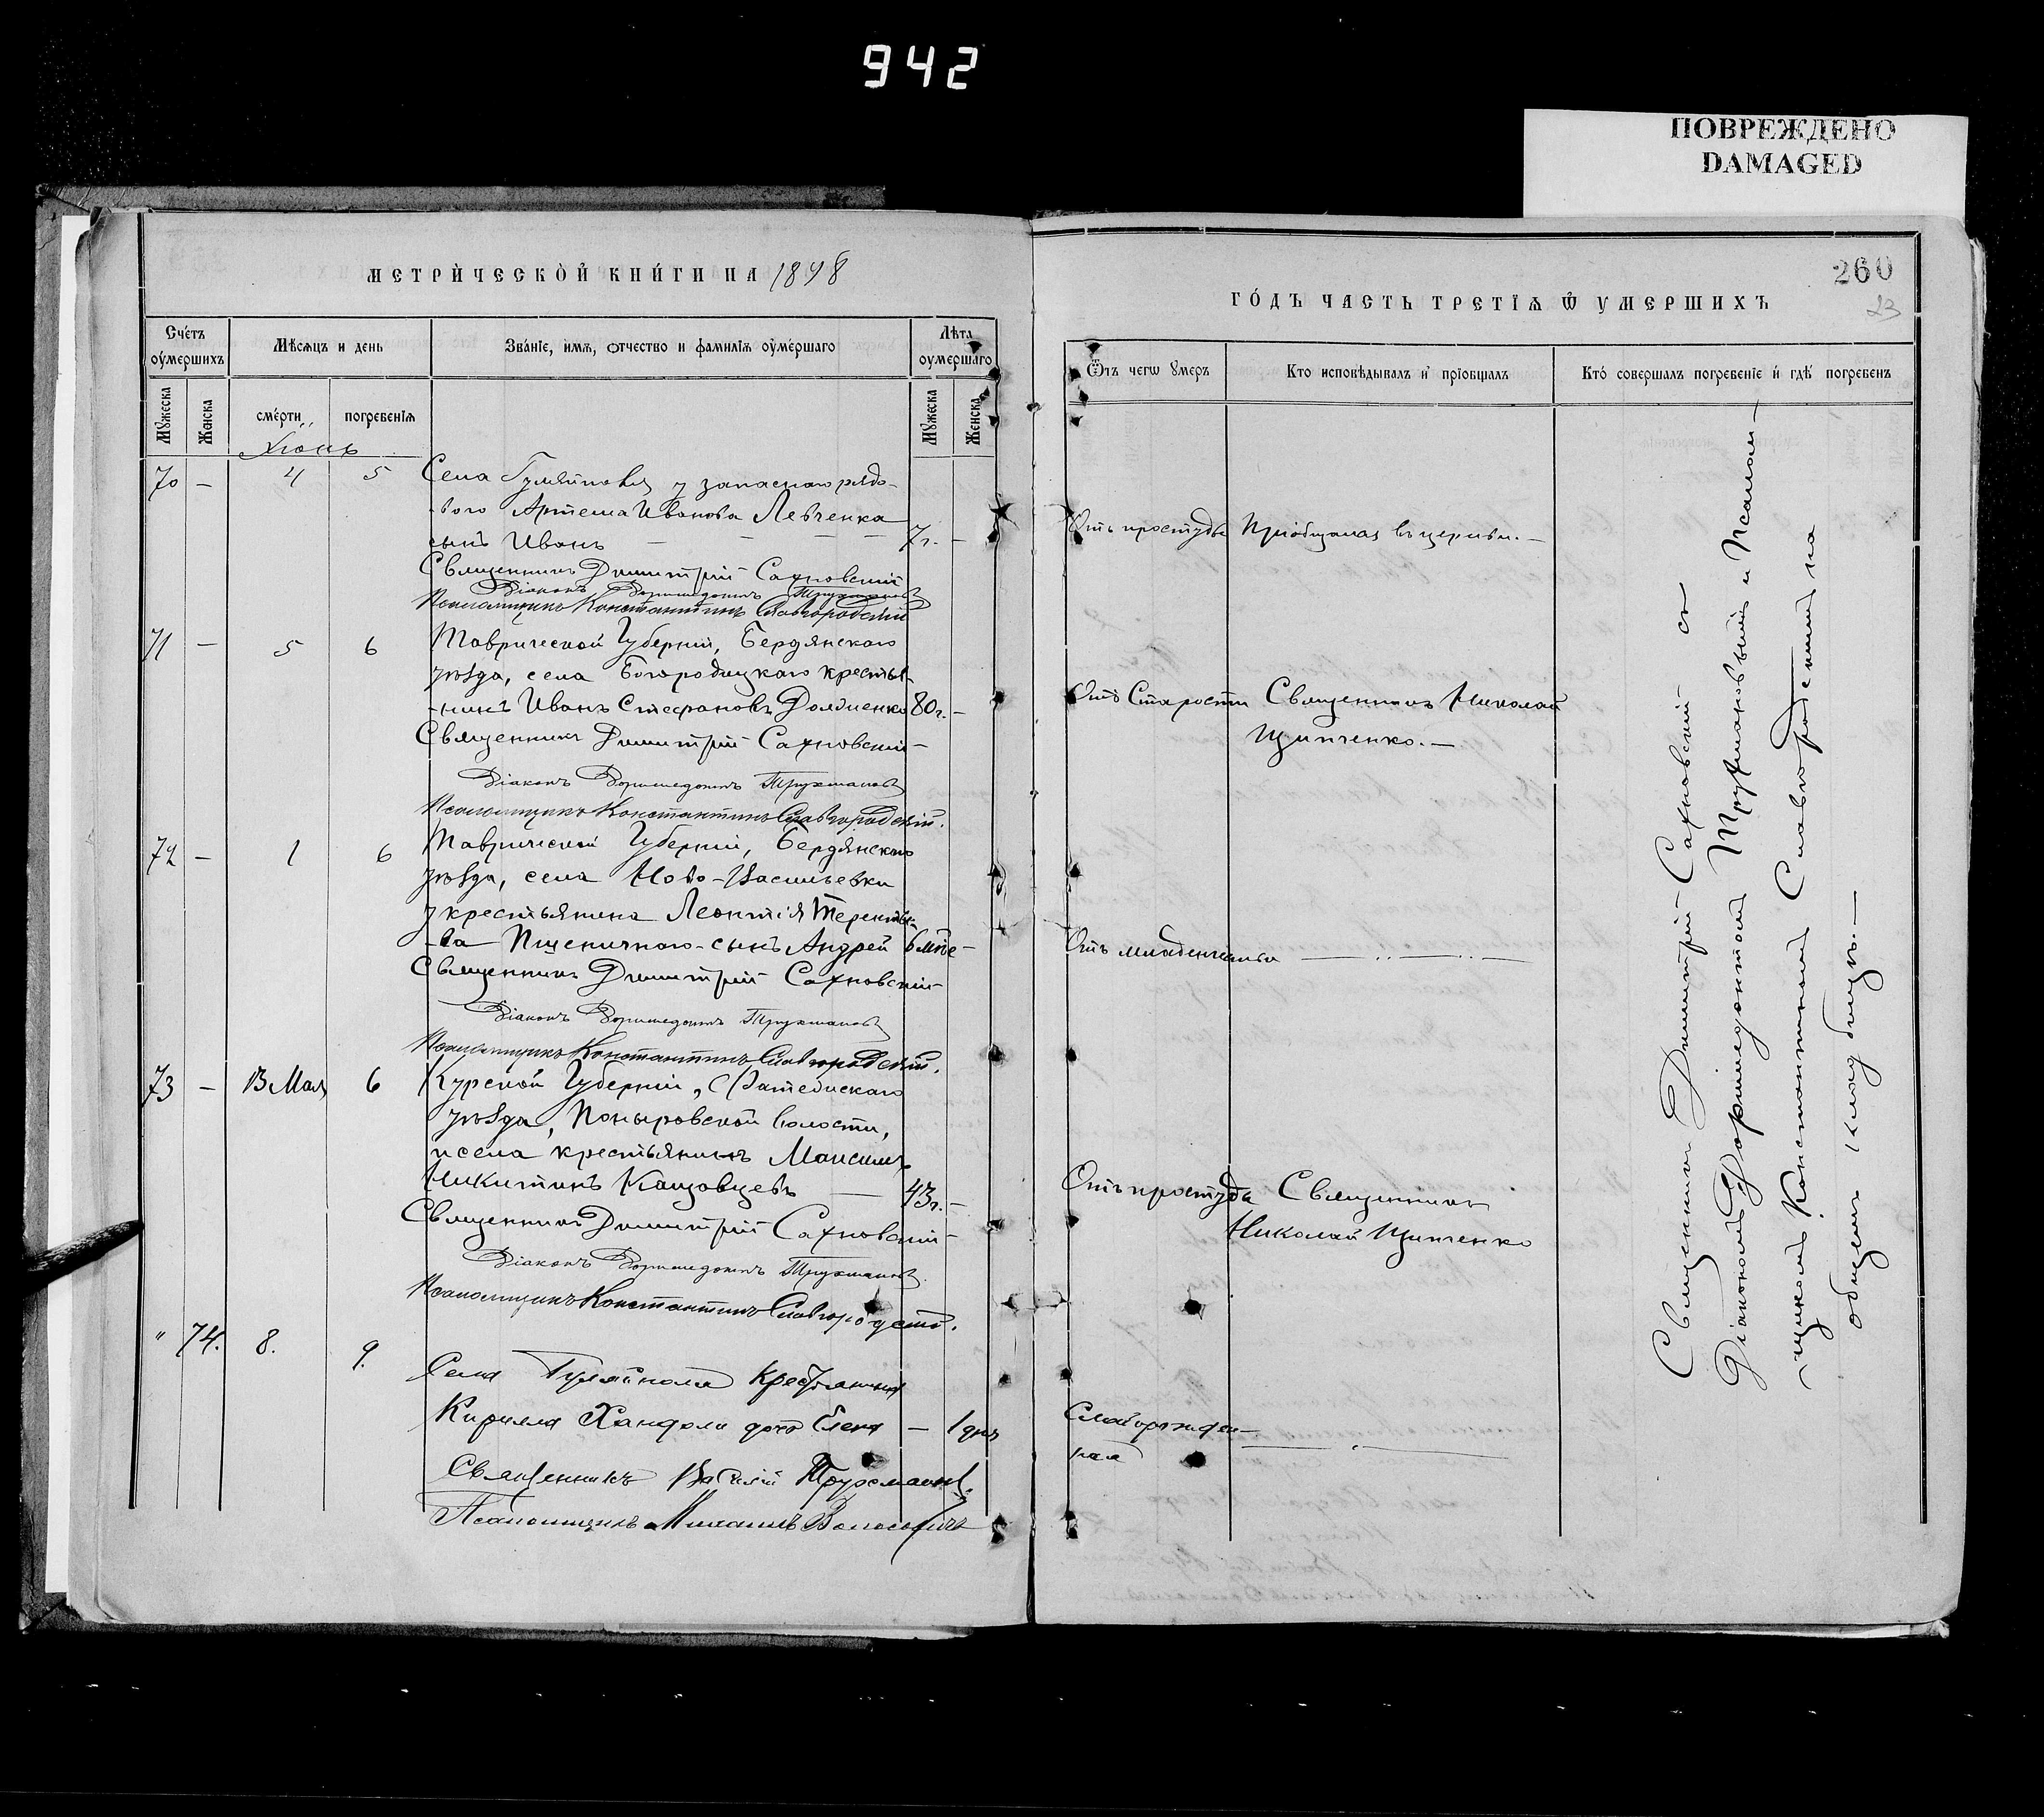 942
ПОВРЕЖДЕНО
DAMAGED
МЕТРИЧЕСКОЙ КНИГИ НА 1898
Счетъ оумершихъ
Мѣсяцъ и день
Званіе, имя, отчество и фамилія оумершаго
Лѣта оумершаго
Мужеска
Женска
смерти
погребенія
Мужеска
Женска
Іюнь
70 — 4 5 Села Гуляйполя у запаснаго рядо-
-вого Артема Иванова Левченка
сынъ Иванъ — — — — 7г. —
Священникъ Димитрій Сахновскій
Діаконъ Доримедонтъ Трухмановъ
Псаломщикъ Константинъ Славгородскій
71 — 5 6 Таврической Губерніи, Бердянскаго
уѣзда, села Богородицкаго крестья-
-нинъ Иванъ Стефановъ 80г. —
Священникъ Димитрій Сахновскій
Діаконъ Доримедонтъ Трухмановъ
Псаломщикъ Константинъ Славгородскій.
72 — 1 6 Таврической Губерніи, Бердянскаго
уѣзда, села Ново-Васильевки
у крестьянина Леонтія Теренть-
-ва Пшеничнаго - сынъ Андрей 6 мѣс —
Священникъ Димитрій Сахновскій
Діаконъ Доримедонтъ Трухмановъ
Псаломщикъ Константинъ Славгородскій.
73 — 13 Мая 6 Курской Губерніи,
уѣзда, Поныровской волости,
и села крестьянинъ Максимъ
Никитинъ — 43г. —
Священникъ Димитрій Сахновскій
Діаконъ Доримедонтъ Трухмановъ.
Псаломщикъ Константинъ Славгородскій.
" 74. 8. 9.
Села Гуляйполя крестьянина
Кирилла дочь Елена — 1 дня
Священникъ Василій
Псаломщикъ Михаилъ
260
23
ГОДЪ ЧАСТЬ ТРЕТІЯ Ѿ УМЕРШИХЪ
Ѿтъ чегѡ умеръ
Кто исповѣдывалъ и пріобщалъ
Кто совершалъ погребеніе и гдѣ погребенъ
Отъ простуды Пріобщался въ церкви. —
Отъ Старости Священникъ Николай
Щитченко. —
Отъ младенческой
Отъ простуды Священникъ
Николай Щитченко
Слаборожден-
ная
Священникъ Димитрій Сахновскій съ
Діакономъ Доримедонтомъ Трухмановымъ и Псалом-
-щикомъ Константиномъ Славгородскимъ на
общемъ кладбищѣ. —